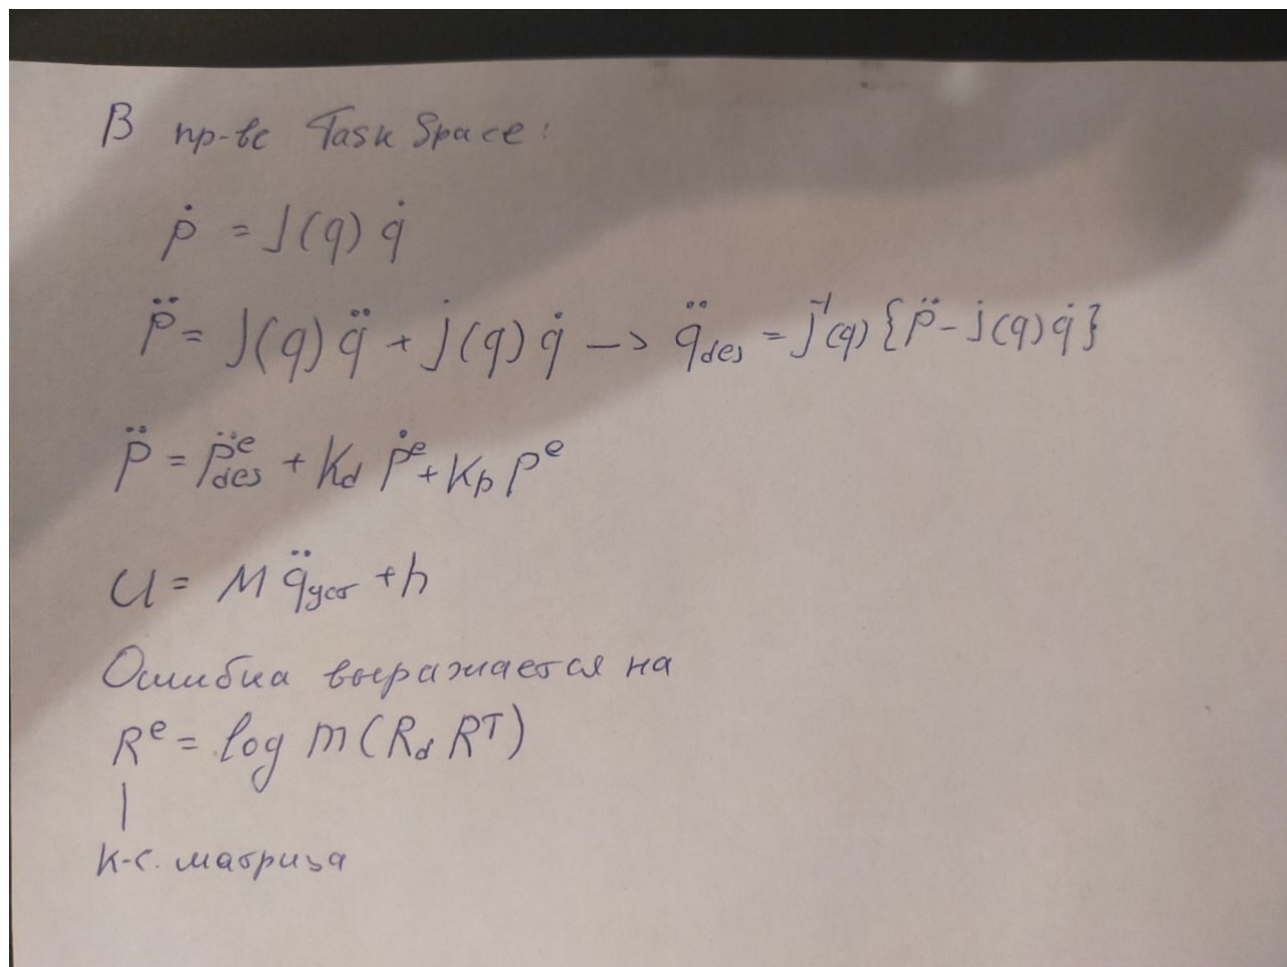 В пр-ве Task Space:
ṗ = J(q) q̇
p̈ = J(q) q̈ + J̇(q) q̇ → q̈_des = J⁻¹(q) {p̈ - J̇(q) q̇}
p̈ = p̈ᵉ_des + K_d ṗᵉ + K_p pᵉ
U = M q̈_уст + h
Ошибка выражается на
Rᵉ = log m (R_d Rᵀ)
|
к-с. матрица